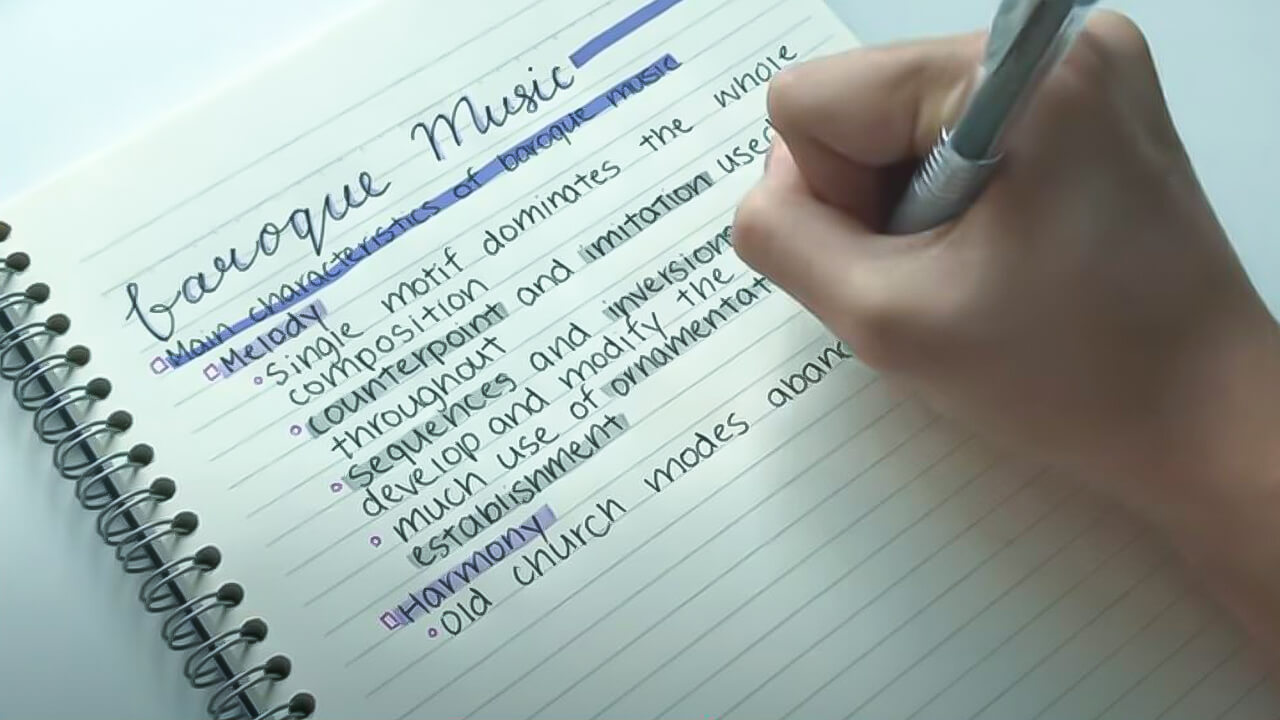 baroque Music
Main characteristics of baroque music
Melody
single motif dominates the whole
composition
counterpoint and imitation used
throughout
sequences and inversions
develop and modify the
much use of
establishment
Harmony
Old church modes